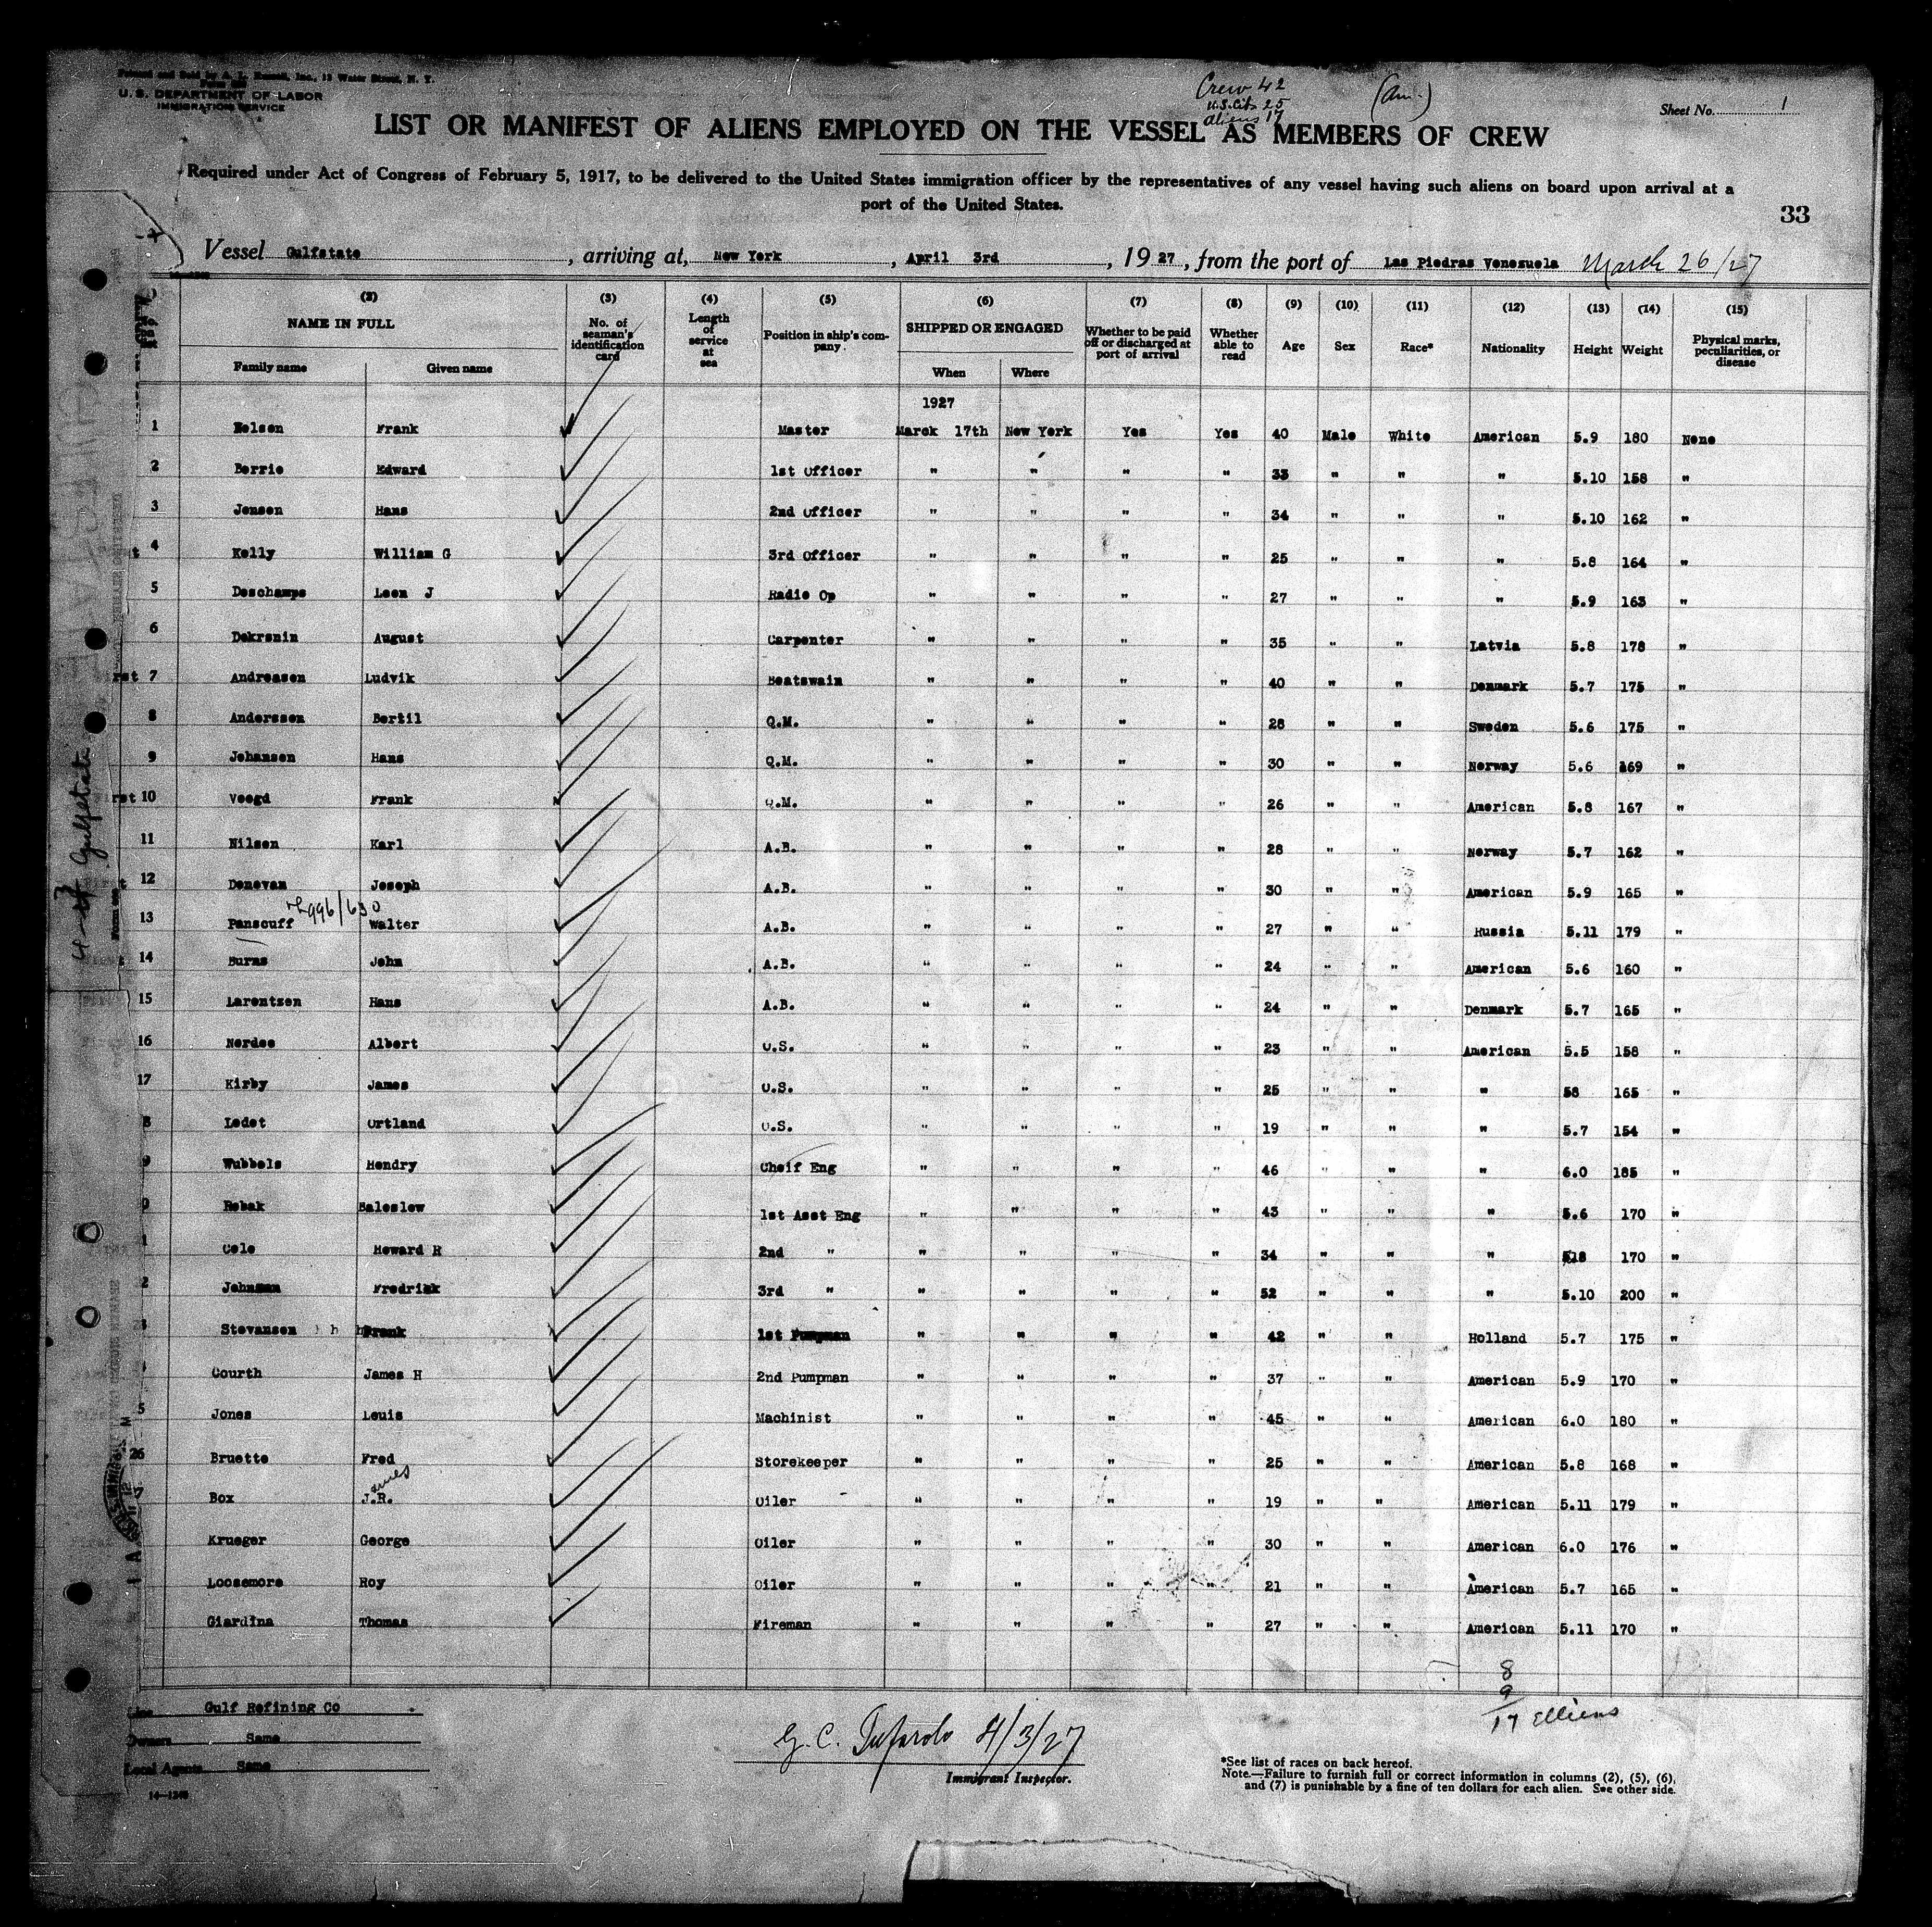 Printed and Sold by A. L. Russell, Inc., 12 Water Street, N. Y.
U. S. DEPARTMENT OF LABOR
IMMIGRATION SERVICE
Crew 42
U.S. Cit. 25
aliens 17
(Am.)
Sheet No. 1
LIST OR MANIFEST OF ALIENS EMPLOYED ON THE VESSEL AS MEMBERS OF CREW
Required under Act of Congress of February 5, 1917, to be delivered to the United States immigration officer by the representatives of any vessel having such aliens on board upon arrival at a
port of the United States.
33
Vessel Gulfstate, arriving at, New York, April 3rd, 1927, from the port of Las Piedras Venezuela March 26/27
(2) (3) (4) (5) (6) (7) (8) (9) (10) (11) (12) (13) (14) (15)
NAME IN FULL No. of seaman's identification card Length of service at sea Position in ship's company. SHIPPED OR ENGAGED Whether to be paid off or discharged at port of arrival Whether able to read Age Sex Race* Nationality Height Weight Physical marks, peculiarities, or disease
Family name Given name When Where
1927
1 Nelsen Frank Master Marck 17th New York Yes Yes 40 Male White American 5.9 180 None
2 Berrie Edward 1st Officer " " " " 33 " " " 5.10 158 "
3 Jensen Hans 2nd Officer " " " " 34 " " " 5.10 162 "
4 Kelly William G 3rd Officer " " " " 25 " " " 5.8 164 "
5 Deschamps Leon J Radio Op " " " " 27 " " " 5.9 163 "
6 Dekrsnin August Carpenter " " " " 35 " " Latvia 5.8 178 "
7 Andreasen Ludvik Boatswain " " " " 40 " " Denmark 5.7 175 "
8 Anderssen Bertil Q.M. " " " " 28 " " Sweden 5.6 175 "
9 Johansen Hans Q.M. " " " " 30 " " Norway 5.6 169 "
10 Voogd Frank Q.M. " " " " 26 " " American 5.8 167 "
11 Nilsen Karl A.B. " " " " 28 " " Norway 5.7 162 "
12 Donovan Joseph A.B. " " " " 30 " " American 5.9 165 "
996/630
13 Panscuff Walter A.B. " " " " 27 " " Russia 5.11 179 "
14 Burns John A.B. " " " " 24 " " American 5.6 160 "
15 Larentzen Hans A.B. " " " " 24 " " Denmark 5.7 165 "
16 Nerdee Albert O.S. " " " " 23 " " American 5.5 158 "
17 Kirby James O.S. " " " " 25 " " " 58 165 "
8 Ledet Ortland O.S. " " " " 19 " " " 5.7 154 "
9 Wubbels Hendry Cheif Eng " " " " 46 " " " 6.0 185 "
0 Rebak Baleslew 1st Asst Eng " " " " 43 " " " 5.6 170 "
1 Cole Howard R 2nd " " " " " 34 " " " 170 "
2 Johnson Fredrick 3rd " " " " " 52 " " " 5.10 200 "
Stevansen Frank 1st Pumpman " " " " 42 " " Holland 5.7 175 "
Courth James H 2nd Pumpman " " " " 37 " " American 5.9 170 "
5 Jones Louis Machinist " " " " 45 " " American 6.0 180 "
26 Bruette Fred Storekeeper " " " " 25 " " American 5.8 168 "
James
Box J.R. Oiler " " " " 19 " " American 5.11 179 "
Krueger George Oiler " " " " 30 " " American 6.0 176 "
Loosemore Roy Oiler " " " " 21 " " American 5.7 165 "
Giardina Thomas Fireman " " " " 27 " " American 5.11 170 "
8
9
17 Elliens
Line Gulf Refining Co
Owners Same
Local Agents Same
14—1248
4/3/27
Immigrant Inspector.
*See list of races on back hereof.
Note.—Failure to furnish full or correct information in columns (2), (5), (6),
and (7) is punishable by a fine of ten dollars for each alien. See other side.
Gulfstate